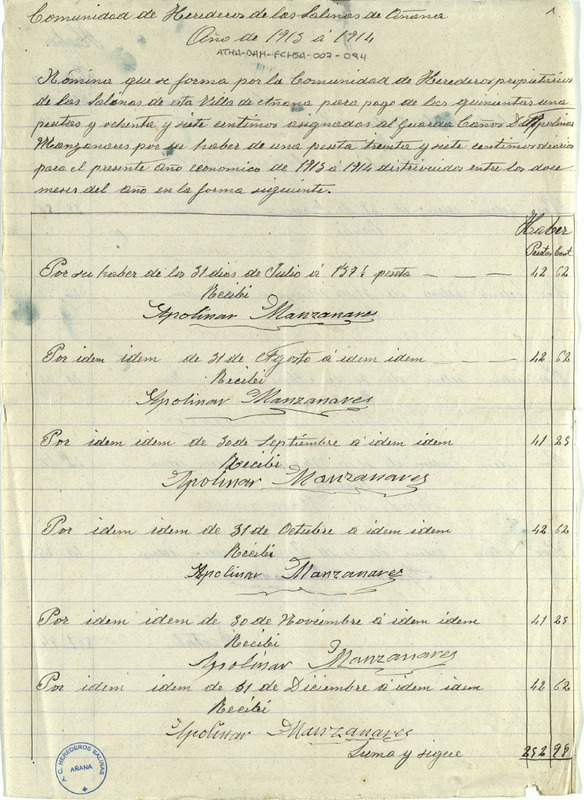 1.
Comunidad de Herederos de las Salinas de Añana
Año de 1913 á 1914
ATHA-DAH-FCHSA-007-094
Nomina que se forma por la Comunidad de Herederos propietarios
de las Salinas de esta Villa de Añana para pago de las quinientas una
pesetas y ochenta y siete centimos asignados al Guarda Caños D. Apolinar
Manzanares por su haber de una peseta treinta y siete centimos diarios
para el presente año economico de 1913 á 1914 distrivuidos entre los doce
meses del año en la forma siguiente.
Haber
Pesetas Cent
Por su haber de los 31 dias de Julio á peseta 42 62
Recibi
Apolinar Manzanares
Por idem idem de 31 de Agosto á idem idem 42 62
Recibi
Apolinar Manzanares
Por idem idem de 30 de Septiembre á idem idem 41 25
Recibi
Apolinar Manzanares
Por idem idem de 31 de Octubre á idem idem 42 62
Recibi
Apolinar Manzanares
Por idem idem de 30 de Noviembre á idem idem 41 25
Recibi
Apolinar Manzanares
Por idem idem de 31 de Diciembre á idem idem 42 62
Recibi
Apolinar Manzanares
Suma y sigue 252 98
C. HEREDEROS SALINAS
AÑANA